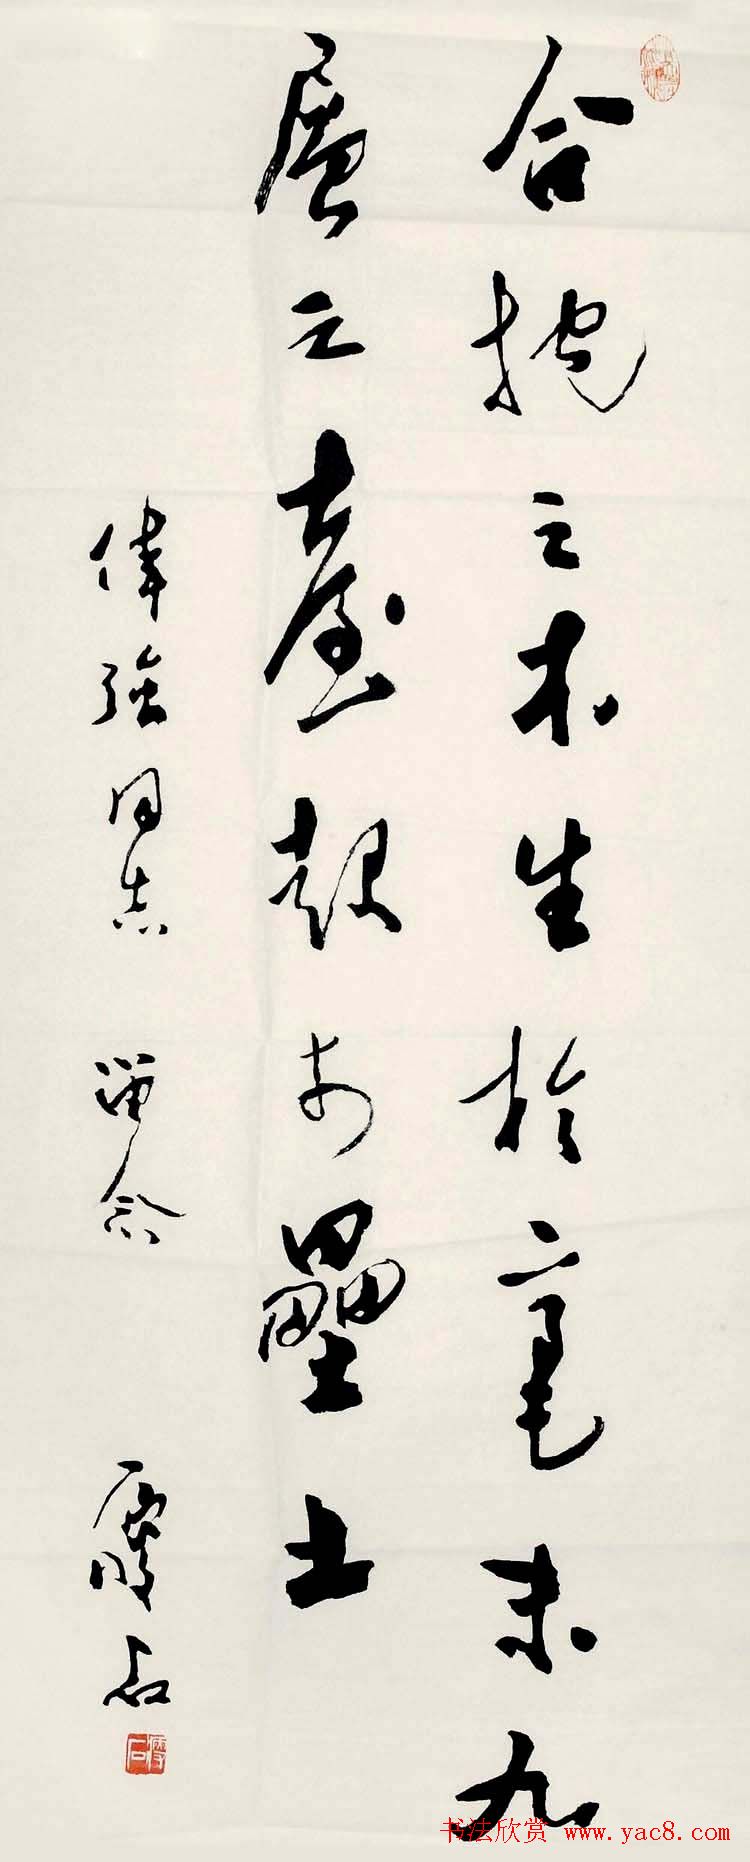 合抱之木生於毫末九
層之臺起於壘土
偉強同志 留念
书法欣赏 www.yac8.com